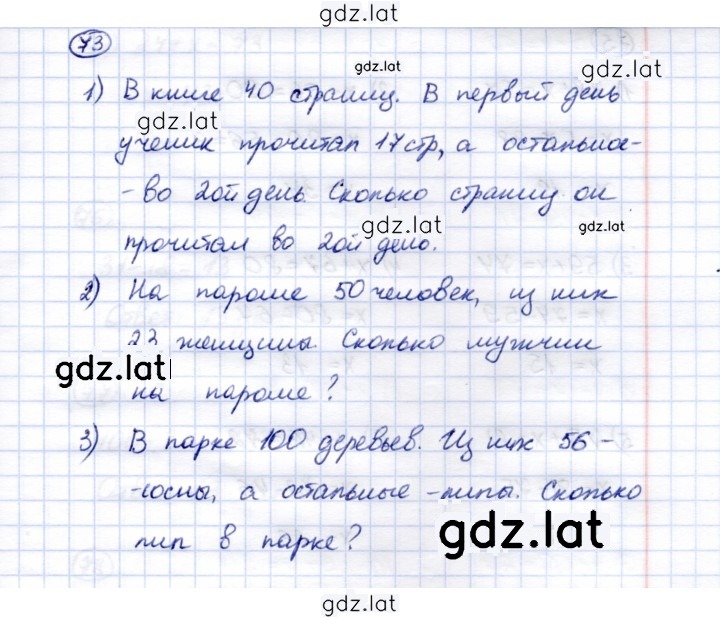 gdz.lat
73
gdz.lat
gdz.lat
1) В книге 40 страниц. В первый день
gdz.lat
ученик прочитал 17 стр, а остальное-
-во 2ой день. Сколько страниц он
gdz.lat
gdz.lat
прочитал во 2ой дено.
2) На пароме 50 человек, из них
женщины. Сколько мужчин
gdz.lat
на пароме?
3) В парке 100 деревьев. Из них 56-
-сосны, а остальные -липы. Сколько
лип в парке?
gdz.lat
gdz.lat